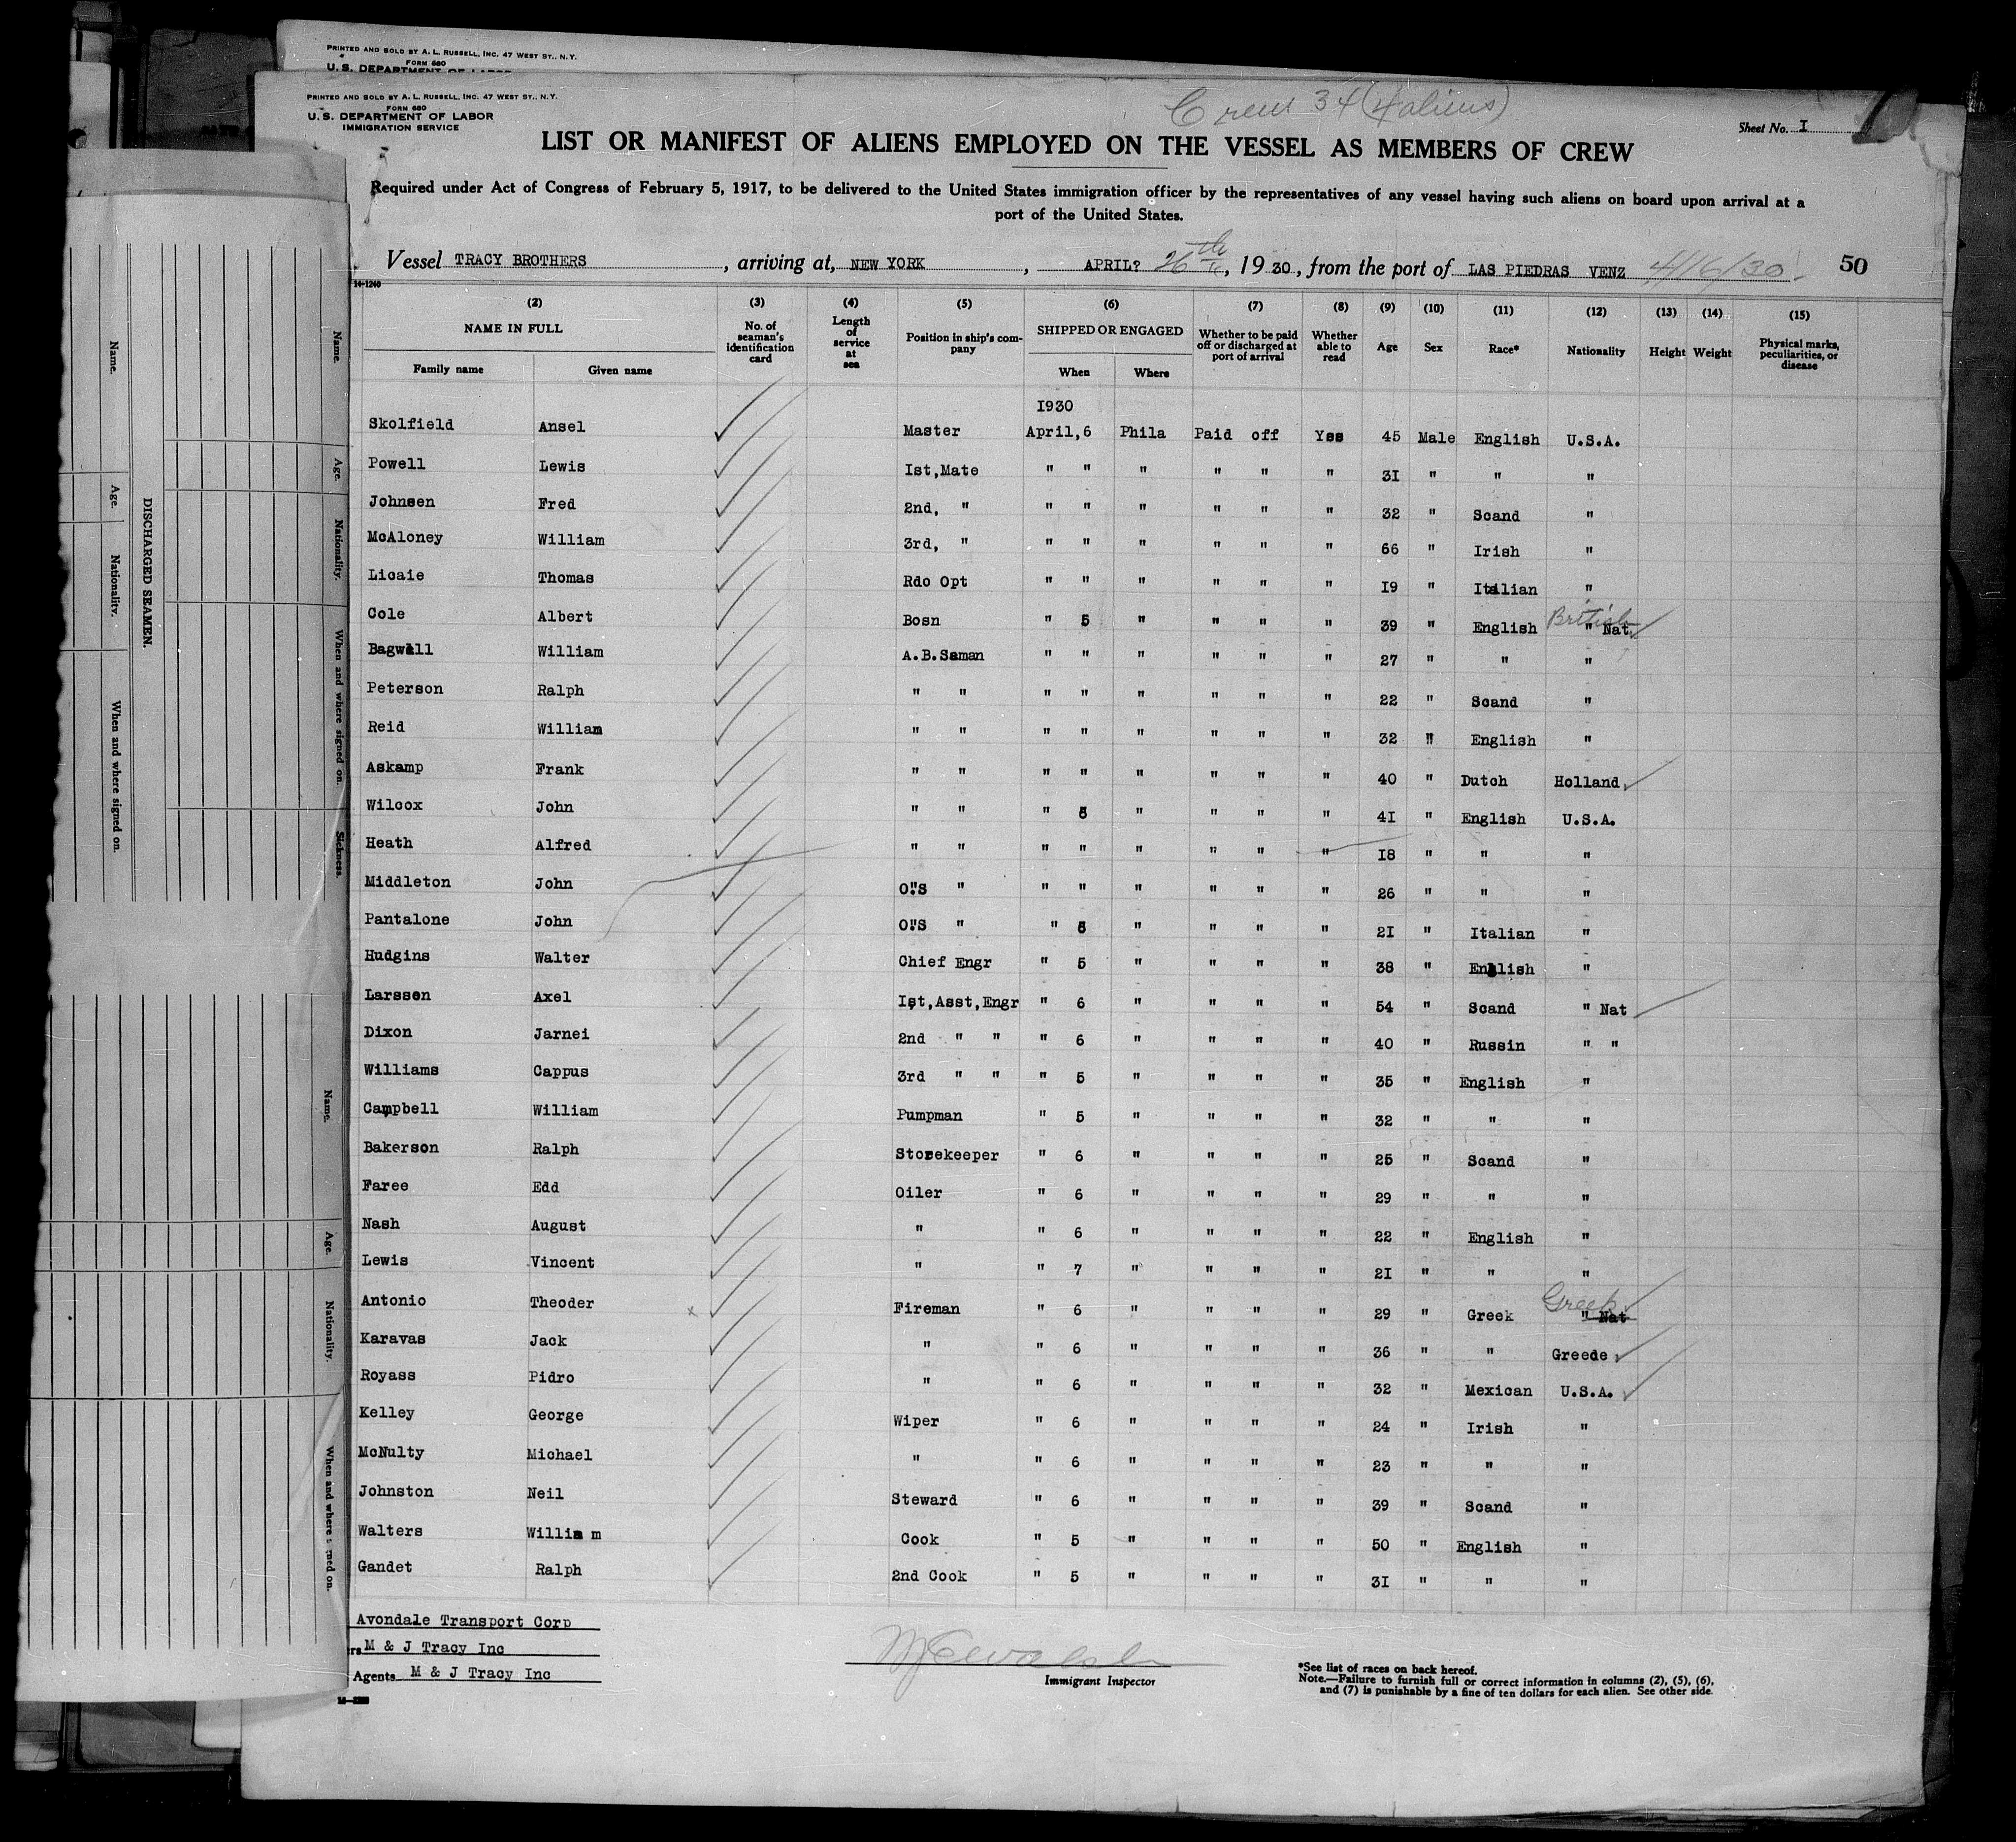 PRINTED AND SOLD BY A. L. RUSSELL, INC. 47 WEST ST., N.Y.
FORM 680
U. S. DEPARTMENT OF LABOR
PRINTED AND SOLD BY A. L. RUSSELL, INC. 47 WEST ST., N.Y.
FORM 680
U. S. DEPARTMENT OF LABOR
IMMIGRATION SERVICE
Crew 34 (4 aliens)
Sheet No. I
LIST OR MANIFEST OF ALIENS EMPLOYED ON THE VESSEL AS MEMBERS OF CREW
Required under Act of Congress of February 5, 1917, to be delivered to the United States immigration officer by the representatives of any vessel having such aliens on board upon arrival at a
port of the United States.
Vessel TRACY BROTHERS, arriving at, NEW YORK, APRIL? 26th, 1930, from the port of LAS PIEDRAS VENZ 4/16/30 50
14-1240
(2) (3) (4) (5) (6) (7) (8) (9) (10) (11) (12) (13) (14) (15)
NAME IN FULL No. of seaman's identification card Length of service at sea Position in ship's company SHIPPED OR ENGAGED Whether to be paid off or discharged at port of arrival Whether able to read Age Sex Race* Nationality Height Weight Physical marks, peculiarities, or disease
Family name Given name When Where
1930
Skolfield Ansel Master April,6 Phila Paid off Yes 45 Male English U.S.A.
Powell Lewis Ist,Mate " " " " " " 3I " " "
Johnsen Fred 2nd, " " " " " " " 32 " Scand "
McAloney William 3rd, " " " " " " " 66 " Irish "
Licaie Thomas Rdo Opt " " " " " " I9 " Italian "
Cole Albert Bosn " 5 " " " " 39 " English " Nat British
Bagwell William A.B.Saman " " " " " " 27 " " "
Peterson Ralph " " " " " " " " 22 " Scand "
Reid William " " " " " " " " 32 " English "
Askamp Frank " " " " " " " " 40 " Dutch Holland
Wilcox John " " " 5 " " " " 4I " English U.S.A.
Heath Alfred " " " " " " " " I8 " " "
Middleton John O"S " " " " " " " 26 " " "
Pantalone John O"S " " 5 " " " " 2I " Italian "
Hudgins Walter Chief Engr " 5 " " " " 38 " English "
Larssen Axel Ist,Asst,Engr " 6 " " " " 54 " Scand " Nat
Dixon Jarnei 2nd " " " 6 " " " " 40 " Russin " "
Williams Cappus 3rd " " " 5 " " " " 35 " English "
Campbell William Pumpman " 5 " " " " 32 " " "
Bakerson Ralph Storekeeper " 6 " " " " 25 " Scand "
Faree Edd Oiler " 6 " " " " 29 " " "
Nash August " " 6 " " " " 22 " English "
Lewis Vincent " " 7 " " " " 2I " " "
Antonio Theoder x Fireman " 6 " " " " 29 " Greek " Nat Greek
Karavas Jack " " 6 " " " " 36 " " Greede
Royass Pidro " " 6 " " " " 32 " Mexican U.S.A.
Kelley George Wiper " 6 " " " " 24 " Irish "
McNulty Michael " " 6 " " " " 23 " " "
Johnston Neil Steward " 6 " " " " 39 " Scand "
Walters William Cook " 5 " " " " 50 " English "
Gandet Ralph 2nd Cook " 5 " " " " 3I " " "
Avondale Transport Corp
rs M & J Tracy Inc
Agents M & J Tracy Inc
Immigrant Inspector
*See list of races on back hereof.
Note.—Failure to furnish full or correct information in columns (2), (5), (6),
and (7) is punishable by a fine of ten dollars for each alien. See other side.
Name. Age. Nationality. When and where signed on.
DISCHARGED SEAMEN.
Name. Age. Nationality. When and where signed on. Sickness.
Name. Age. Nationality. When and where signed on.